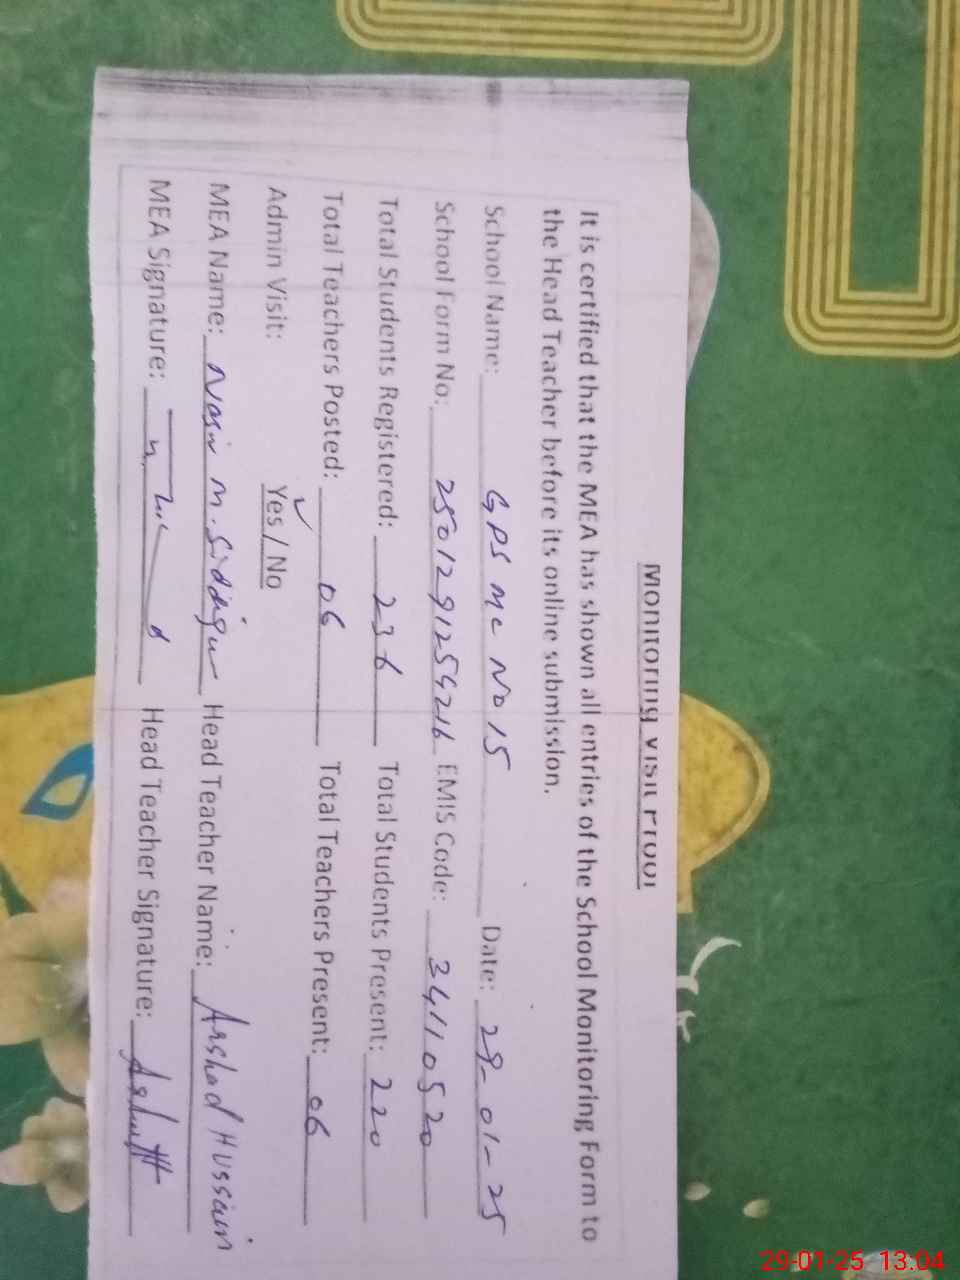 Monitoring Visit Proof
It is certified that the MEA has shown all entries of the School Monitoring Form to
the Head Teacher before its online submission.
School Name: GPS MC NO 15 Date: 29-01-25
School Form No: 2501291259216 EMIS Code: 34110520
Total Students Registered: 236 Total Students Present: 220
Total Teachers Posted: 06 Total Teachers Present: 06
Admin Visit: Yes / No
MEA Name: Nasir M. Siddiqui Head Teacher Name: Arshad Hussain
MEA Signature: Head Teacher Signature:
29-01-25 13:04